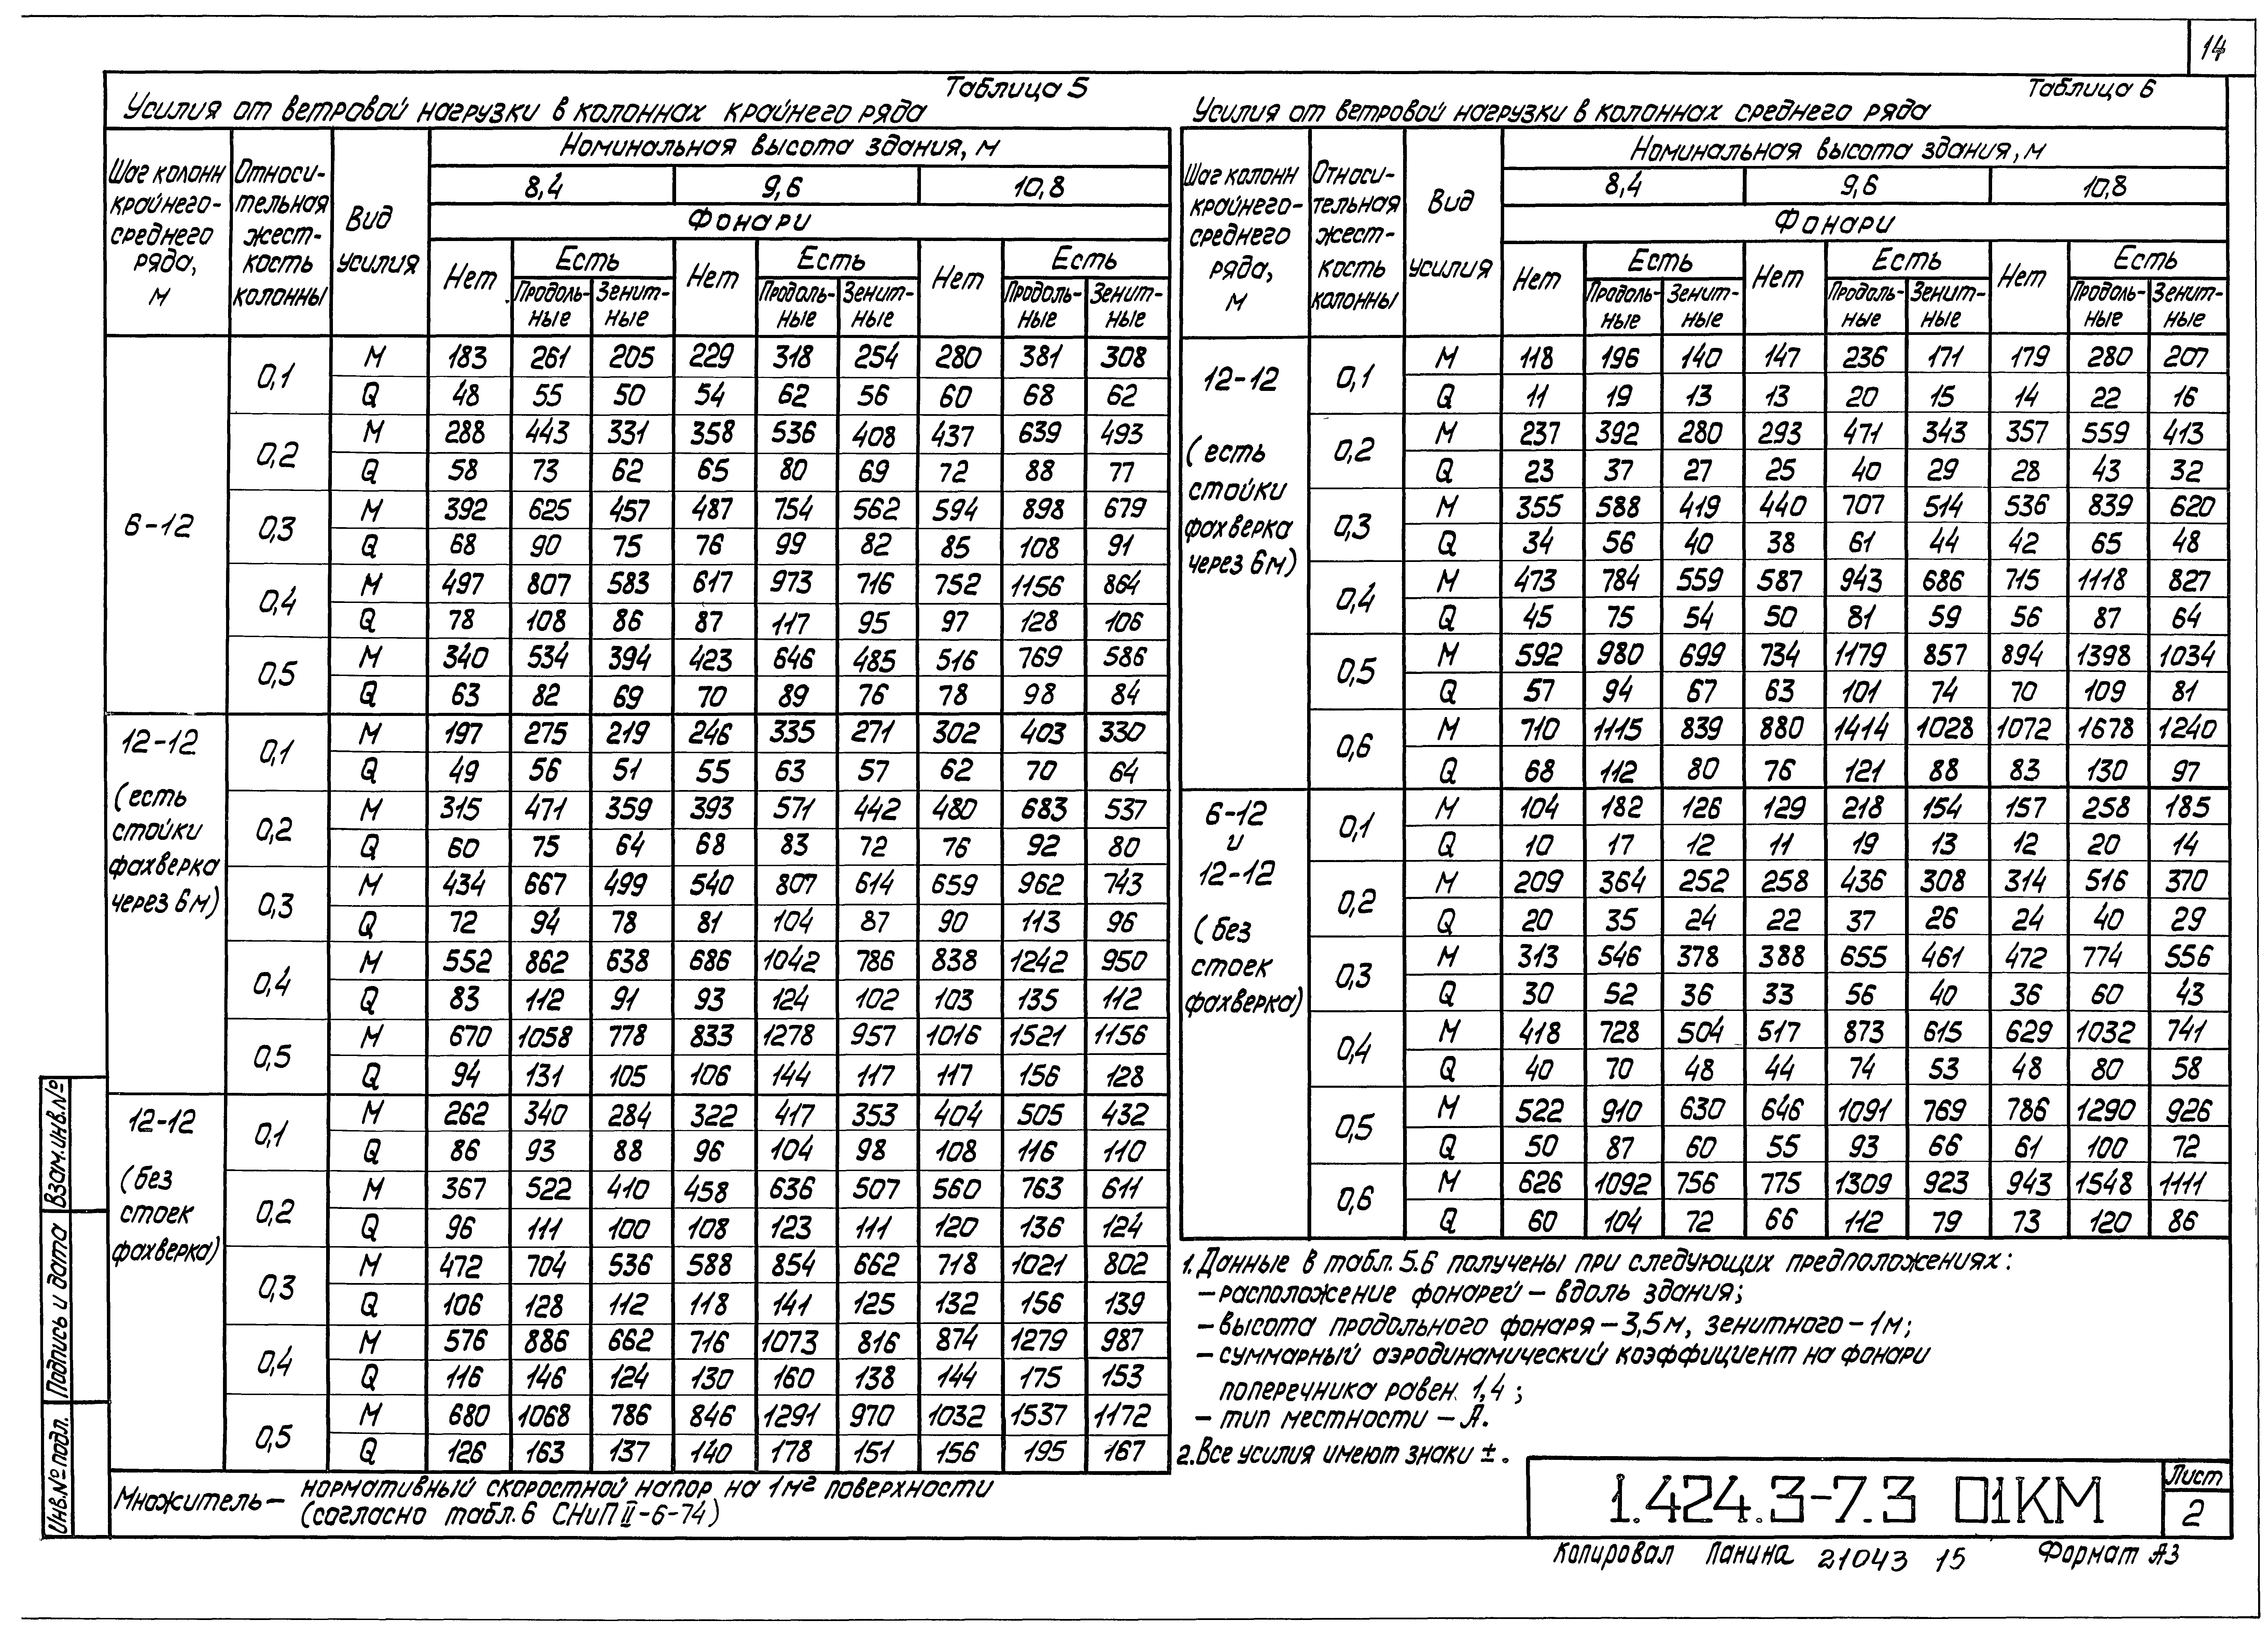 14
Таблица 5
Усилия от ветровой нагрузки в колоннах крайнего ряда
Шаг колонн крайнего-среднего ряда, м | Относительная жесткость колонны | Вид усилия | Номинальная высота здания, м
8,4 | 9,6 | 10,8
Фонари
Нет | Есть | Нет | Есть | Нет | Есть
Продоль-ные | Зенит-ные | Продоль-ные | Зенит-ные | Продоль-ные | Зенит-ные
6-12
0,1 М 183 261 205 229 318 254 280 381 308
Q 48 55 50 54 62 56 60 68 62
0,2 М 288 443 331 358 536 408 437 639 493
Q 58 73 62 65 80 69 72 88 77
0,3 М 392 625 457 487 754 562 594 898 679
Q 68 90 75 76 99 82 85 108 91
0,4 М 497 807 583 617 973 716 752 1156 864
Q 78 108 86 87 117 95 97 128 106
0,5 М 340 534 394 423 646 485 516 769 586
Q 63 82 69 70 89 76 78 98 84
12-12 (есть стойки фахверка через 6м)
0,1 М 197 275 219 246 335 271 302 403 330
Q 49 56 51 55 63 57 62 70 64
0,2 М 315 471 359 393 571 442 480 683 537
Q 60 75 64 68 83 72 76 92 80
0,3 М 434 667 499 540 807 614 659 962 743
Q 72 94 78 81 104 87 90 113 96
0,4 М 552 862 638 686 1042 786 838 1242 950
Q 83 112 91 93 124 102 103 135 112
0,5 М 670 1058 778 833 1278 957 1016 1521 1156
Q 94 131 105 106 144 117 117 156 128
12-12 (без стоек фахверка)
0,1 М 262 340 284 322 417 353 404 505 432
Q 86 93 88 96 104 98 108 116 110
0,2 М 367 522 410 458 636 507 560 763 611
Q 96 111 100 108 123 111 120 136 124
0,3 М 472 704 536 588 854 662 718 1021 802
Q 106 128 112 118 141 125 132 156 139
0,4 М 576 886 662 716 1073 816 874 1279 987
Q 116 146 124 130 160 138 144 175 153
0,5 М 680 1068 786 846 1291 970 1032 1537 1172
Q 126 163 137 140 178 151 156 195 167
Множитель — нормативный скоростной напор на 1м² поверхности
(согласно табл.6 СНиП II-6-74)
Таблица 6
Усилия от ветровой нагрузки в колоннах среднего ряда
Шаг колонн крайнего-среднего ряда, м | Относительная жесткость колонны | Вид усилия | Номинальная высота здания, м
8,4 | 9,6 | 10,8
Фонари
Нет | Есть | Нет | Есть | Нет | Есть
Продоль-ные | Зенит-ные | Продоль-ные | Зенит-ные | Продоль-ные | Зенит-ные
12-12 (есть стойки фахверка через 6м)
0,1 М 118 196 140 147 236 171 179 280 207
Q 11 19 13 13 20 15 14 22 16
0,2 М 237 392 280 293 471 343 357 559 413
Q 23 37 27 25 40 29 28 43 32
0,3 М 355 588 419 440 707 514 536 839 620
Q 34 56 40 38 61 44 42 65 48
0,4 М 473 784 559 587 943 686 715 1118 827
Q 45 75 54 50 81 59 56 87 64
0,5 М 592 980 699 734 1179 857 894 1398 1034
Q 57 94 67 63 101 74 70 109 81
0,6 М 710 1115 839 880 1414 1028 1072 1678 1240
Q 68 112 80 76 121 88 83 130 97
6-12 и 12-12 (без стоек фахверка)
0,1 М 104 182 126 129 218 154 157 258 185
Q 10 17 12 11 19 13 12 20 14
0,2 М 209 364 252 258 436 308 314 516 370
Q 20 35 24 22 37 26 24 40 29
0,3 М 313 546 378 388 655 461 472 774 556
Q 30 52 36 33 56 40 36 60 43
0,4 М 418 728 504 517 873 615 629 1032 741
Q 40 70 48 44 74 53 48 80 58
0,5 М 522 910 630 646 1091 769 786 1290 926
Q 50 87 60 55 93 66 61 100 72
0,6 М 626 1092 756 775 1309 923 943 1548 1111
Q 60 104 72 66 112 79 73 120 86
1. Данные в табл. 5.6 получены при следующих предположениях:
— расположение фонарей — вдоль здания;
— высота продольного фонаря — 3,5м, зенитного — 1м;
— суммарный аэродинамический коэффициент на фонари
поперечника равен 1,4;
— тип местности — А.
2. Все усилия имеют знаки ±.
1.424.3-7.3 01КМ
Лист
2
Копировал Панина 21043 15 Формат А3
Взам.инв.№
Подпись и дата
Инв.№ подл.